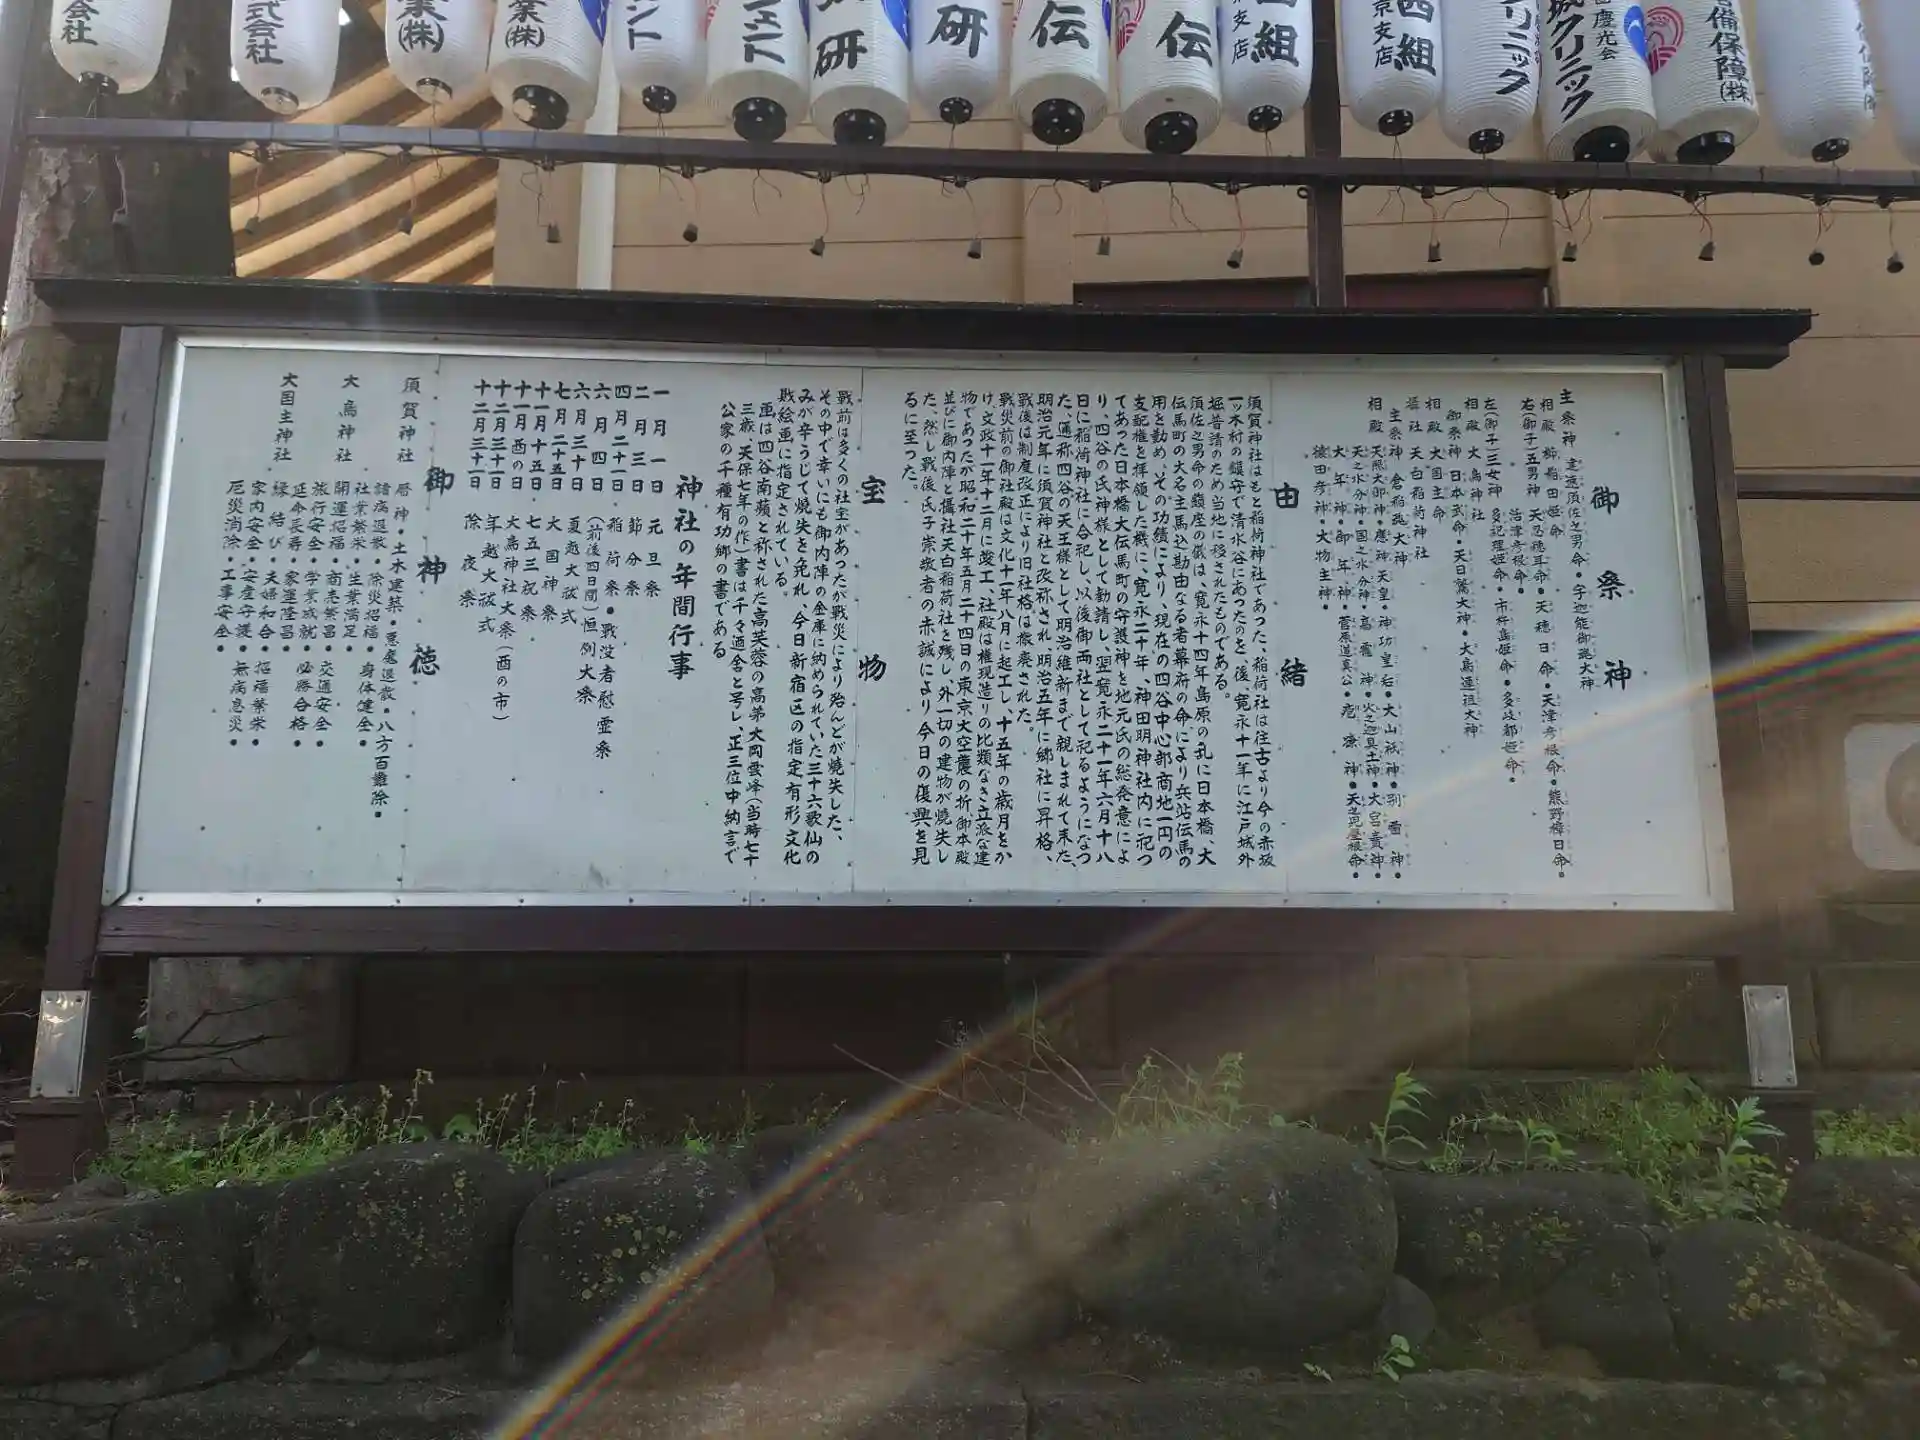 会社
式会社
業(株)
業(株)
研
研
伝
伝
西組
京支店
クリニック
城クリニック
慶光会
警備保障(株)
御祭神
主祭神 建速須佐之男命・宇迦能御魂大神
相殿 櫛稲田姫命
右(御子)五男神 天忍穂耳命・天穂日命・天津彦根命・熊野樟日命・
活津彦根命・
左(御子)三女神 多記理姫命・市杵島姫命・多岐都姫命・
相殿 大鳥神社
御祭神 日本武命・天日鷲大神・大鳥連祖大神
相殿 大国主命
摂社 天白稲荷神社
主祭神 倉稲魂大神
相殿 天照大御神・應神天皇・神功皇后・大山祇神・別雷神・
天之水分神・国之水分神・高龗神・火之迦具土神・大宮賣神・
大年神・御年神・菅原道真公・疱瘡神・天之児屋根命・
猿田彦神・大物主神・
由緒
須賀神社はもと稲荷神社であった、稲荷社は往古より今の赤坂
一ツ木村の鎮守で清水谷にあったのを後、寛永十一年に江戸城外
堀普請のため当地に移されたものである。
須佐之男命の鎮座の儀は、寛永十四年島原の乱に日本橋、大
伝馬町の大名主馬込勘由なる者幕府の命により兵站伝馬の
用を勤め、その功績により、現在の四谷中心部商地一円の
支配権を拝領した機に、寛永二十年、神田明神社内に祀つ
てあった日本橋大伝馬町の守護神を地元氏の総発意によ
り、四谷の氏神様として勧請し、翌寛永二十一年六月十八
日に稲荷神社に合祀し、以後御両社として祀るようになつ
た、通称四谷の天王様として明治維新まで親しまれて来た、
明治元年に須賀神社と改称され明治五年に郷社に昇格、
戦後は制度改正により旧社格は撤廃された。
戦災前の御社殿は文化十一年八月に起工し、十五年の歳月をか
け文政十一年十二月に竣工、社殿は権現造りの比類なき立派な建
物であったが昭和二十年五月二十四日の東京大空襲の折、御本殿
並びに御内陣と攝社天白稲荷社を残し、外一切の建物が焼失し
た、然し戦後氏子崇敬者の赤誠により今日の復興を見
るに至った。
宝物
戦前は多くの社宝があったが戦災により殆んどが焼失した、
その中で幸いにも御内陣の金庫に納められていた三十六歌仙の
みが辛うじて焼失を免れ、今日新宿区の指定有形文化
財絵画に指定されている。
画は四谷南蘋と称された高芙蓉の高弟大岡雲峰(当時七十
三歳、天保七年の作)書は千々廼舎と号し、正三位中納言で
公家の千種有功卿の書である
神社の年間行事
一月一日 元旦祭
二月三日 節分祭
四月二十一日 稲荷祭・戦没者慰霊祭
六月四日 (前後四日間)恒例大祭
六月三十日 夏越大祓式
七月二十五日 大国神祭
十一月十五日 七五三祝祭
十一月酉の日 大鳥神社大祭(酉の市)
十二月三十日 年越大祓式
十二月三十一日 除夜祭
御神徳
須賀神社 厝神・土木建築・悪魔退散・八方百難除・
諸病退散・除災招福・身体健全・
大鳥神社 社業繁栄・生業満足・
開運招福・商売繁昌・交通安全・
旅行安全・学業成就・必勝合格・
大国主神社 延命長寿・家運隆昌・
縁結び・夫婦和合・招福繁栄・
家内安全・安産守護・無病息災・
厄災消除・工事安全・